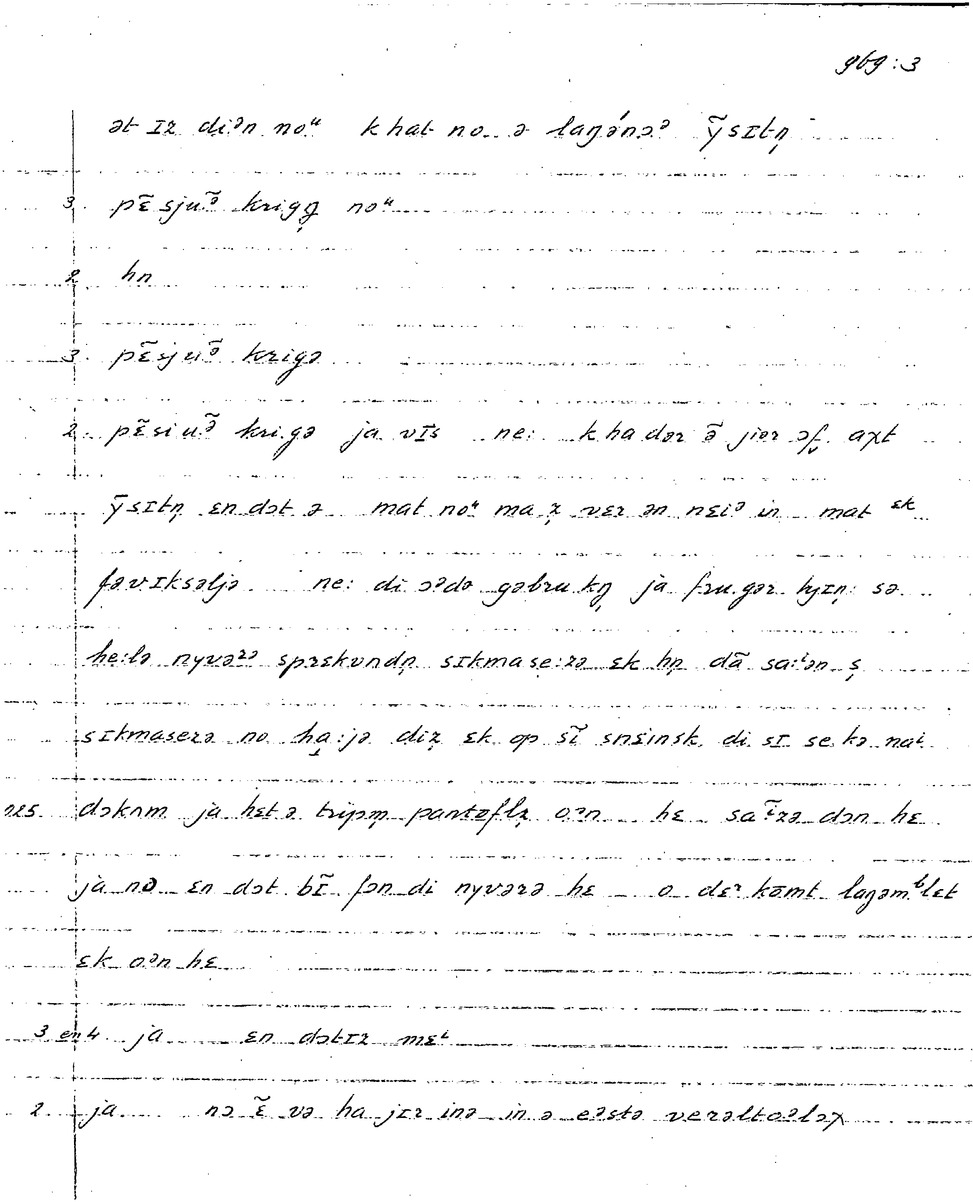 gbg:3
ət ɪz diᵊn noᵘ khat no ə laŋə́nɔᵊ ỹsɪtn̩
3. pɛ̃sjuə̃ krigŋ̩ noᵘ
2 hn
3. pɛ̃sjuə̃ krigə
2. pɛ̃siuə̃ kri.gə ja vɪs ne: k hadər ə̃ jiər ɔf̬ aχt
ỹsɪtn̩ ɛn dɔt ə mat noᵘ ma ʐ vɛr ən nɛiᵊ in mat ɛk
fəvɪksəljə ne: di ɔᵊdə gəbru.kŋ̩ ja fru.gər hjɪn̩: sə
he:lə nyvəᶻᵊ sprɛkʋndn̩ sɪkmase:rə ɛk hn̩ dã sa:ⁱən s̩
sɪkmaserə no ha̱:jə diʐ ɛk op sĩ snɛinsk di sɪ se kə naⁱ
225 dəkʋm ja hɛt ə tripm̩ pantɔflʐ oᵊn hɛ saĩzə dɔn hɛ
ja nɔ ɛn dɔt bɪ̃ fən di nyvərə hɛ o dɛʳ kəmt laŋəmᵇlɛt
ɛk oᵊn hɛ
3 en 4 ja ɛn dɔtɪz mɛᵗ
2 ja nɔ ɛ̃ və ha jɪr inə in ə eᵊstə verəltoᵊlɔχ